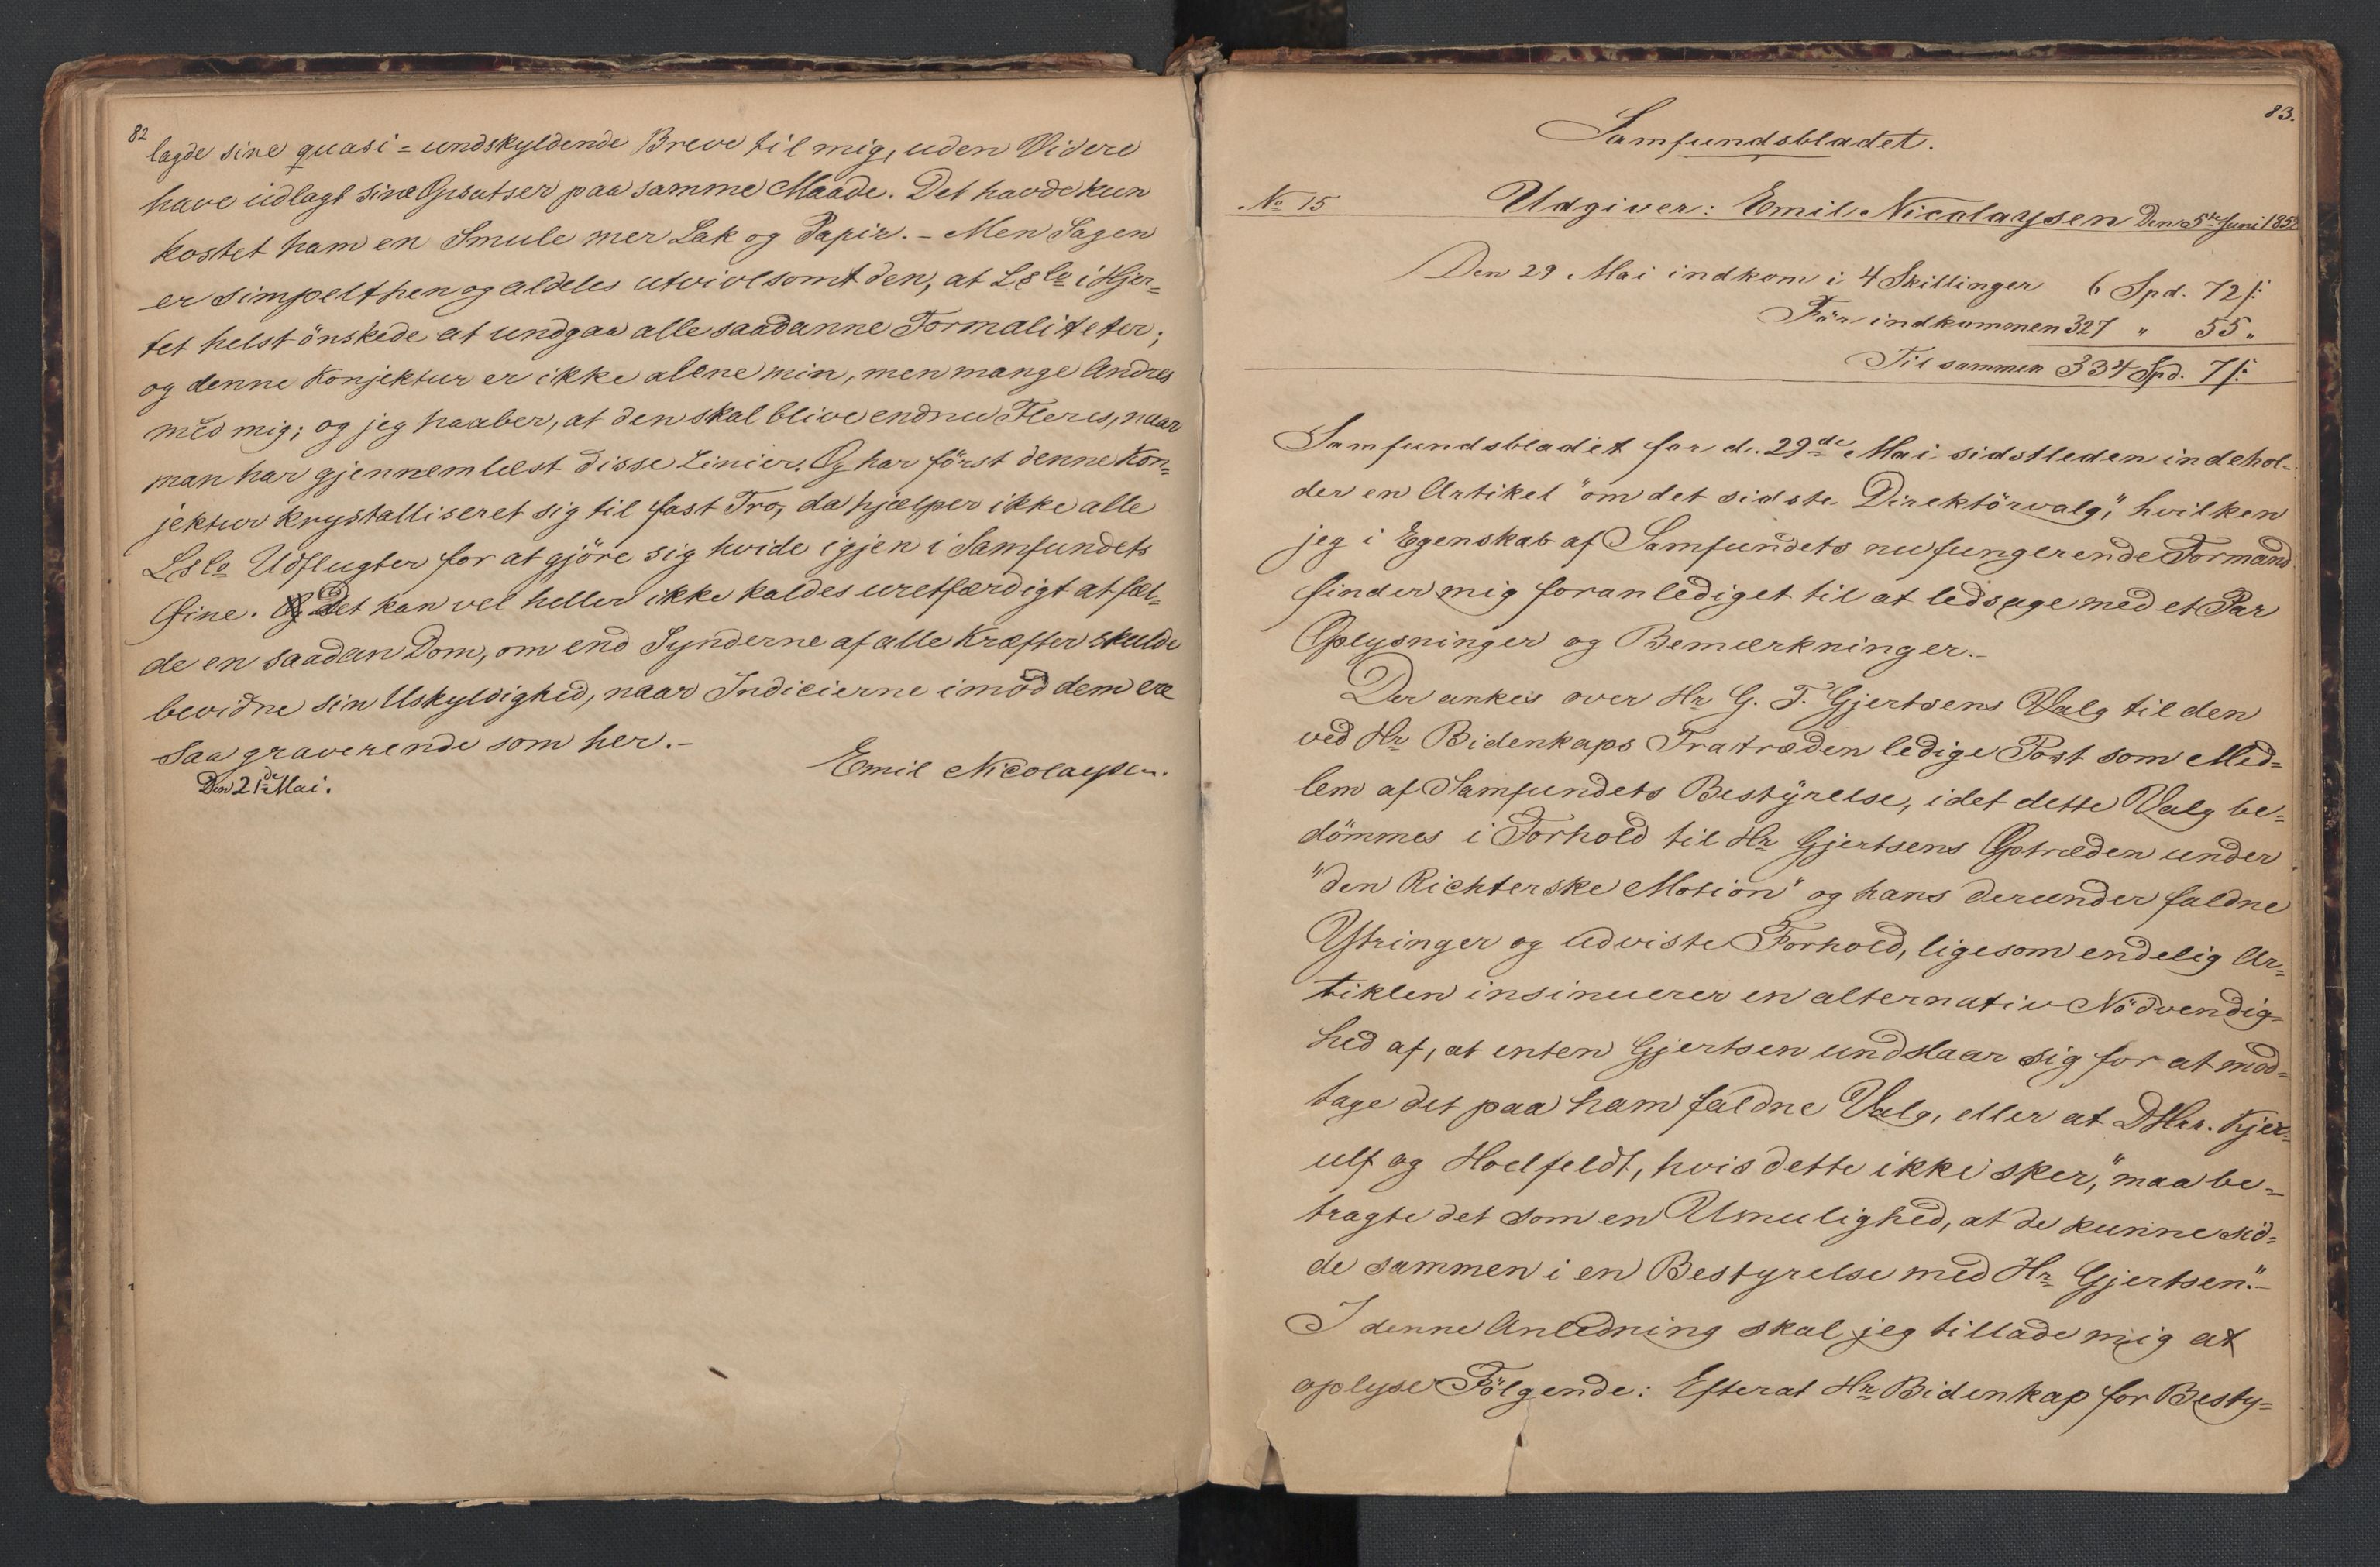 82
lagde sine quasi=undskyldende Breve til mig, uden Videre
have udlagt sine Opsatser paa samme Maade. Det havde kun
kostet ham en Smule mer Lak og Papir. – Men Sagen
er simpelthen og aldeles utvivlsomt den, at L&Co i Hjer=
tet helst önskede at undgaa alle saadanne Formaliteter;
og denne Konjektur er ikke alene min, men mange Andres
med mig; og jeg haaber, at den skal blive endnu Fleres, naar
man har gjennemlæst disse Linier. Og har först denne Kon=
jektur krystalliseret sig til fast Tro, da hjælper ikke alle
L&Co Udflugter for at gjöre sig hvide igjen i Samfundets
Öine. Det kan vel heller ikke kaldes uretfærdigt at fæl=
de en saadan Dom, om end Synderne af alle Kræfter skulde
bevidne sin Uskyldighed, naar Indicierne imod dem ere
saa graverende som her. –
Emil Nicolaysen.
Den 21de Mai.
83.
Samfundsbladet.
No 15 Udgiver: Emil Nicolaysen Den 5te Juni 1852
Den 29 Mai indkom i 4 Skillinger 6 Spd. 72 ß:
För indkommen 327 " 55 "
Tilsammen 334 Spd. 7 ß:
Samfundsbladet for d. 29de Mai sidstleden indehol=
der en Artikel "om det sidste Direktörvalg", hvilken
jeg i Egenskab af Samfundets nu fungerende Formand
finder mig foranlediget til at ledsage med et Par
Oplysninger og Bemærkninger. –
Der ankes over Hr G. F. Gjertsens Valg til den
ved Hr Bidenkaps Fratræden ledige Post som Med=
lem af Samfundets Bestyrelse, idet dette Valg be=
dömmes i Forhold til Hr Gjertsens Optræden under
"den Richterske Motion" og hans derunder faldne
Ytringer og udviste Forhold, ligesom endelig Ar=
tiklen insinuerer en alternativ Nödvendig=
hed af, at enten Gjertsen undslaar sig for at mod=
tage det paa ham faldne Valg, eller at DHrr. Kjer=
ulf og Hoelfeldt, hvis dette ikke sker, "maa be=
tragte det som en Umulighed, at de kunne sid=
de sammen i en Bestyrelse med Hr Gjertsen." –
I denne Anledning skal jeg tillade mig at
oplyse Fölgende: Efterat Hr Bidenkap for Besty=